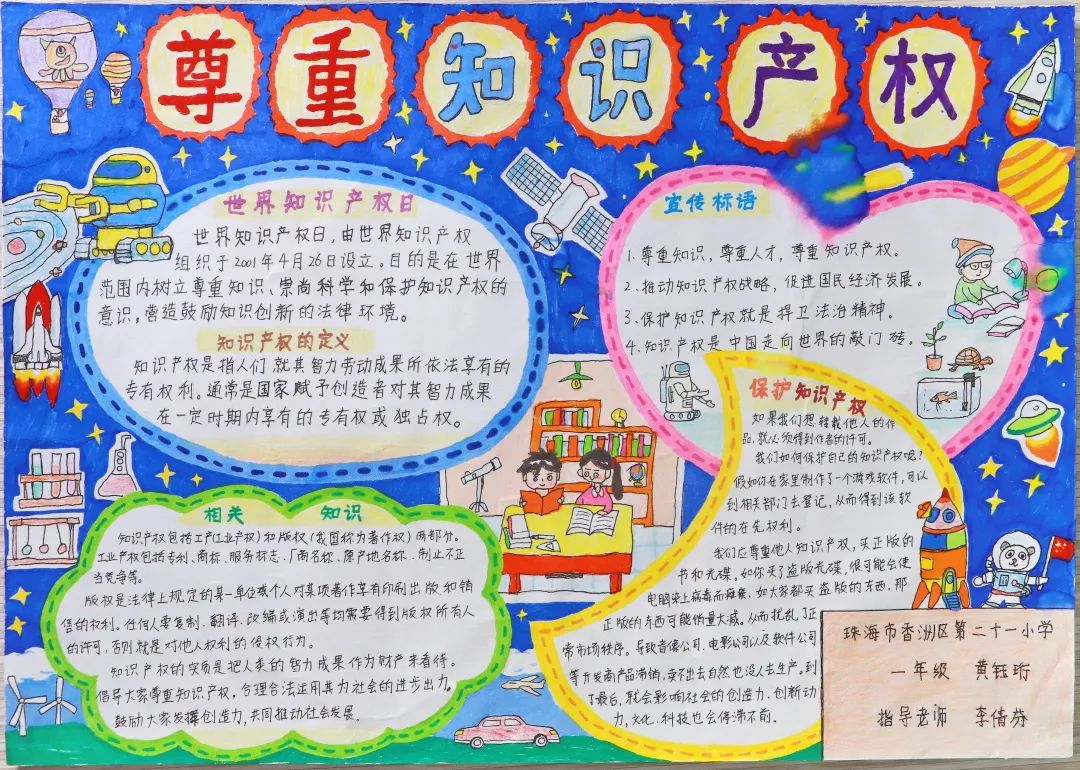 尊重知识产权
世界知识产权日
世界知识产权日，由世界知识产权
组织于2001年4月26日设立。目的是在世界
范围内树立尊重知识、崇尚科学和保护知识产权的
意识，营造鼓励知识创新的法律环境。
知识产权的定义
知识产权是指人们就其智力劳动成果所依法享有的
专有权利。通常是国家赋予创造者对其智力成果
在一定时期内享有的专有权或独占权。
宣传标语
1.尊重知识，尊重人才，尊重知识产权。
2.推动知识产权战略，促进国民经济发展。
3.保护知识产权就是捍卫法治精神。
4.知识产权是中国走向世界的敲门砖。
保护知识产权
如果我们想转载他人的作
品，就必须得到作者的许可。
我们如何保护自己的知识产权呢？
假如你在家里制作了一个游戏软件，可以
到相关部门去登记，从而得到该软
件的在先权利。
我们应尊重他人知识产权，买正版的
书和光碟。如你买了盗版光碟，很可能会使
电脑染上病毒而瘫痪。如大家都买盗版的东西，那
正版的东西可能销量大减。从而扰乱了正
常市场秩序。导致音像公司、电影公司以及软件公司
等开发商产品滞销，卖不出去自然也没人去生产。到
了最后，就会影响社会的创造力、创新动
力，文化、科技也会停滞不前。
相关 知识
知识产权包括工产(工业产权)和版权(我国称为著作权)两部分。
工业产权包括专利、商标、服务标志、厂商名称、原产地名称、制止不正
当竞争等。
版权是法律上规定的某一单位或个人对某项著作享有印刷出版和销
售的权利。任何人要复制、翻译、改编或演出等均需要得到版权所有人
的许可，否则就是对他人权利的侵权行为。
知识产权的实质是把人类的智力成果作为财产来看待。
倡导大家尊重知识产权，合理合法运用其为社会的进步出力。
鼓励大家发挥创造力，共同推动社会发展。
珠海市香洲区第二十一小学
一年级 黄钰珩
指导老师 李倩芬